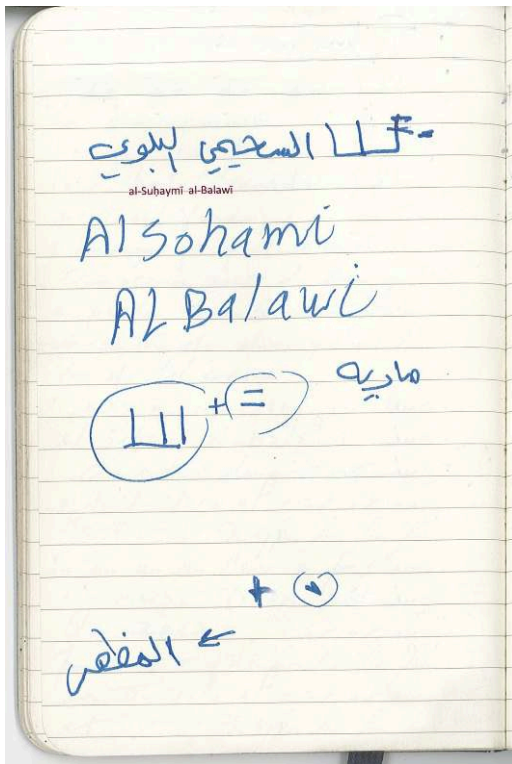 السحيمي البلوي
al-Suḥaymī al-Balawī
AlSohami
AL Balawi
ماريه
+ =
+